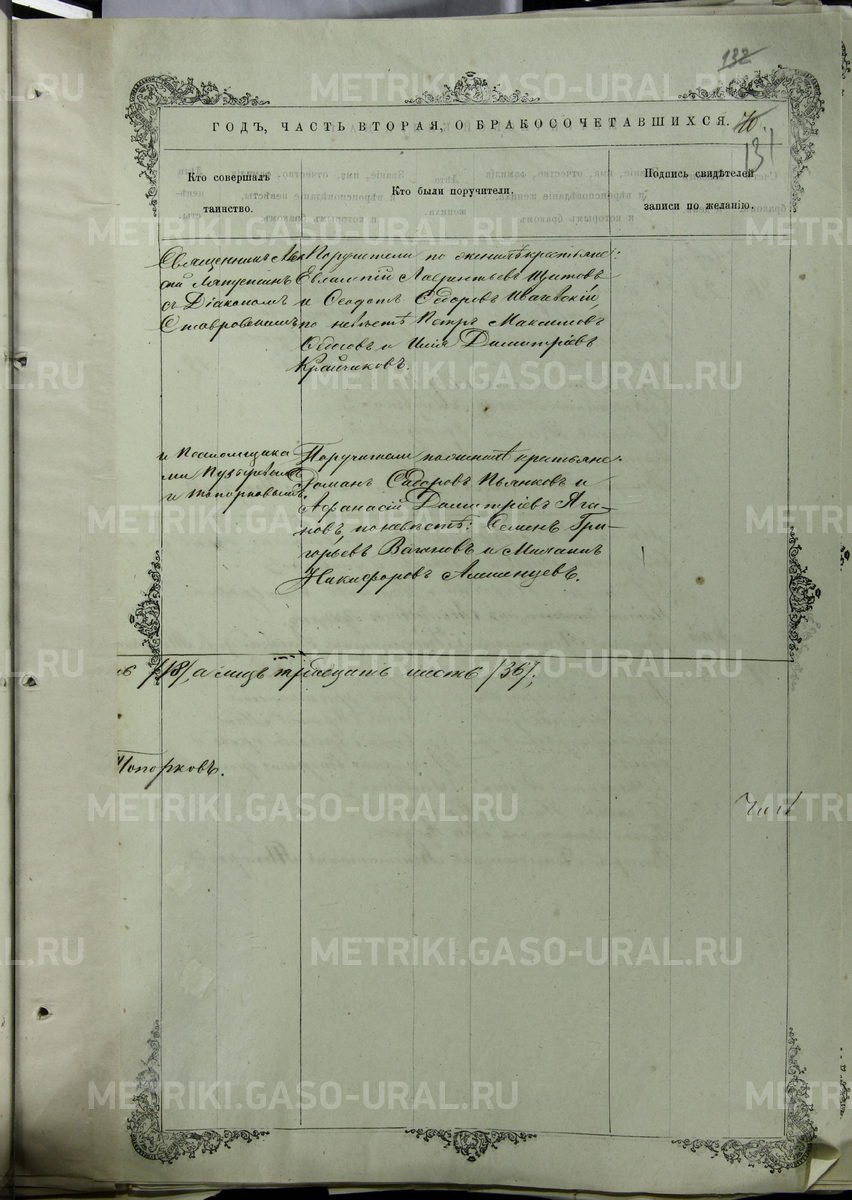 132
ГОДЪ, ЧАСТЬ ВТОРАЯ, О БРАКОСОЧЕТАВШИХСЯ.
131
Кто совершалъ
таинство.
Кто были поручители.
Подпись свидѣтелей
записи по желанію.
Священникъ
съ Діакономъ
Ставровскимъ
Поручители по женихѣ крестьяне:
Евлампій Лаврентьевъ Щитовъ
и Ѳеодотъ Ѳедоровъ
по невѣстѣ Петръ Максимовъ
и Илія Димитріевъ
Крайчиковъ.
и Псаломщика-
ми
и Топорковымъ.
Поручители по женихѣ крестьяне
Романъ Пьянковъ и
Афанасій Димитріевъ Яга-
новъ, по невѣстѣ: Семенъ Гри-
горьевъ Вагановъ и Михаилъ
Никифоровъ
/18/, а лицъ тридцать шесть /36/.
Топорковъ.
METRIKI.GASO-URAL.RU